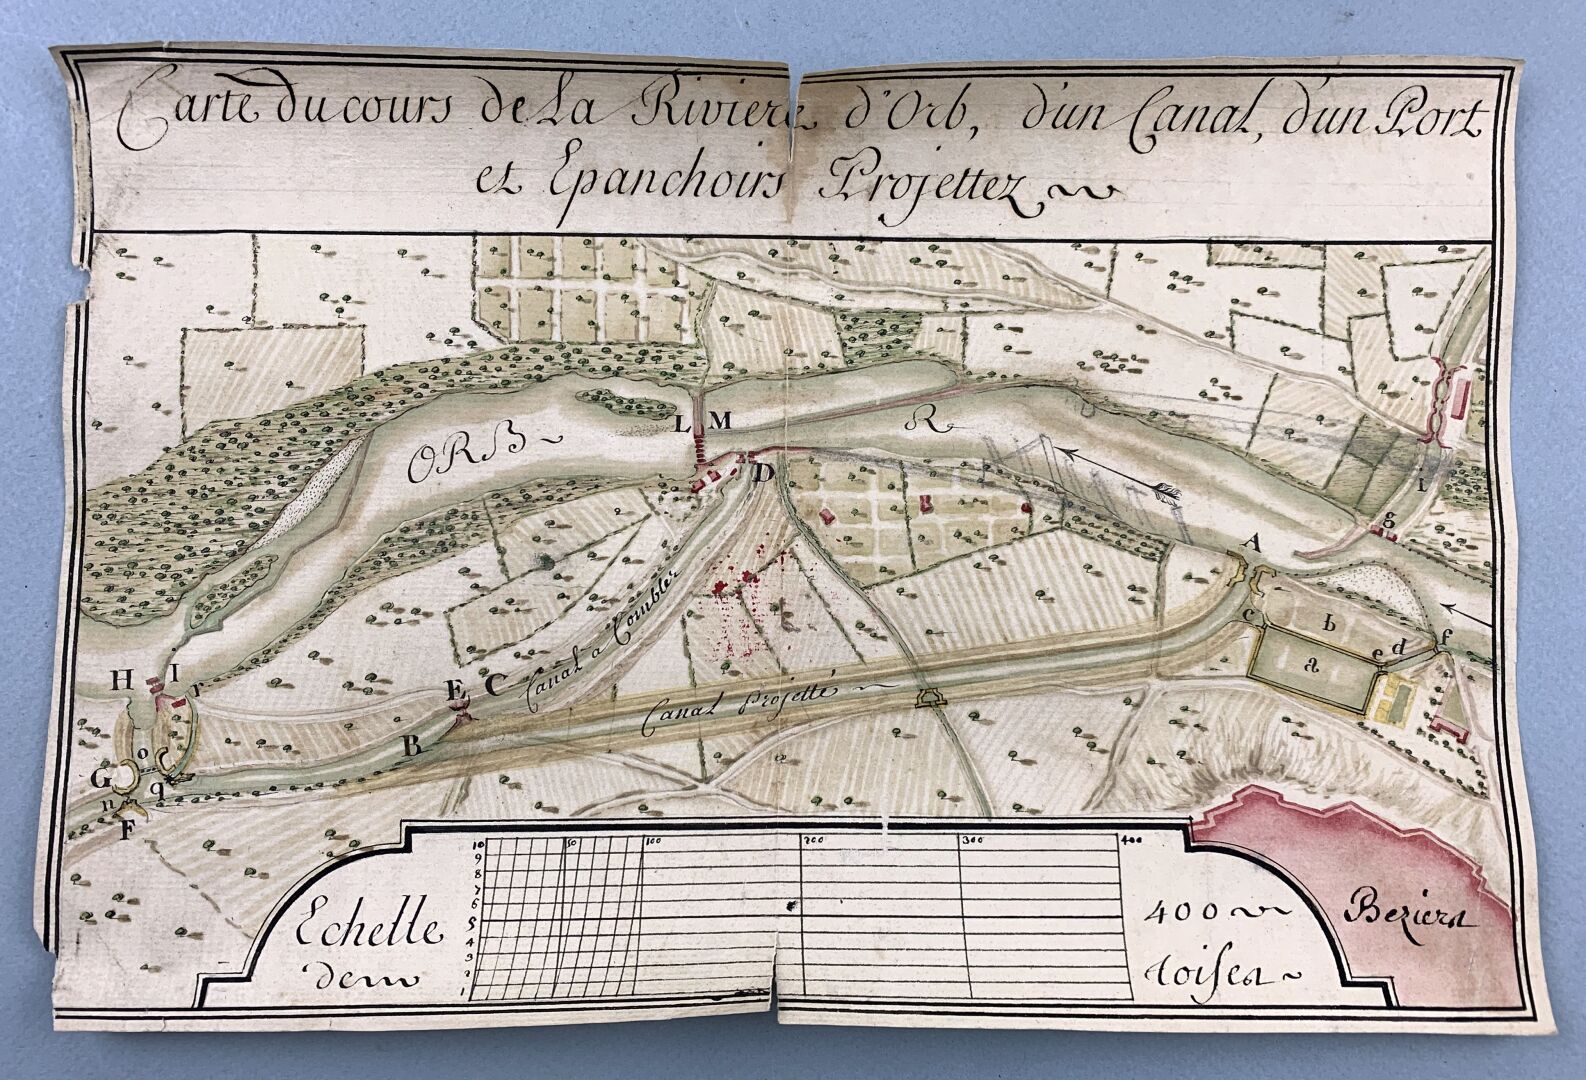 Carte du cours de La Riviere d'Orb, d'un Canal, d'un Port
et Epanchoirs Projettez
ORB
L M
R
D
A
g
L
c
b
a
e d f
H I
r
E C
B
Canal a Combler
Canal Projetté
G
o
n
q
F
Echelle
de
10
9
8
7
6
5
4
3
2
1
50
100
200
300
400
400
toises
Beziers